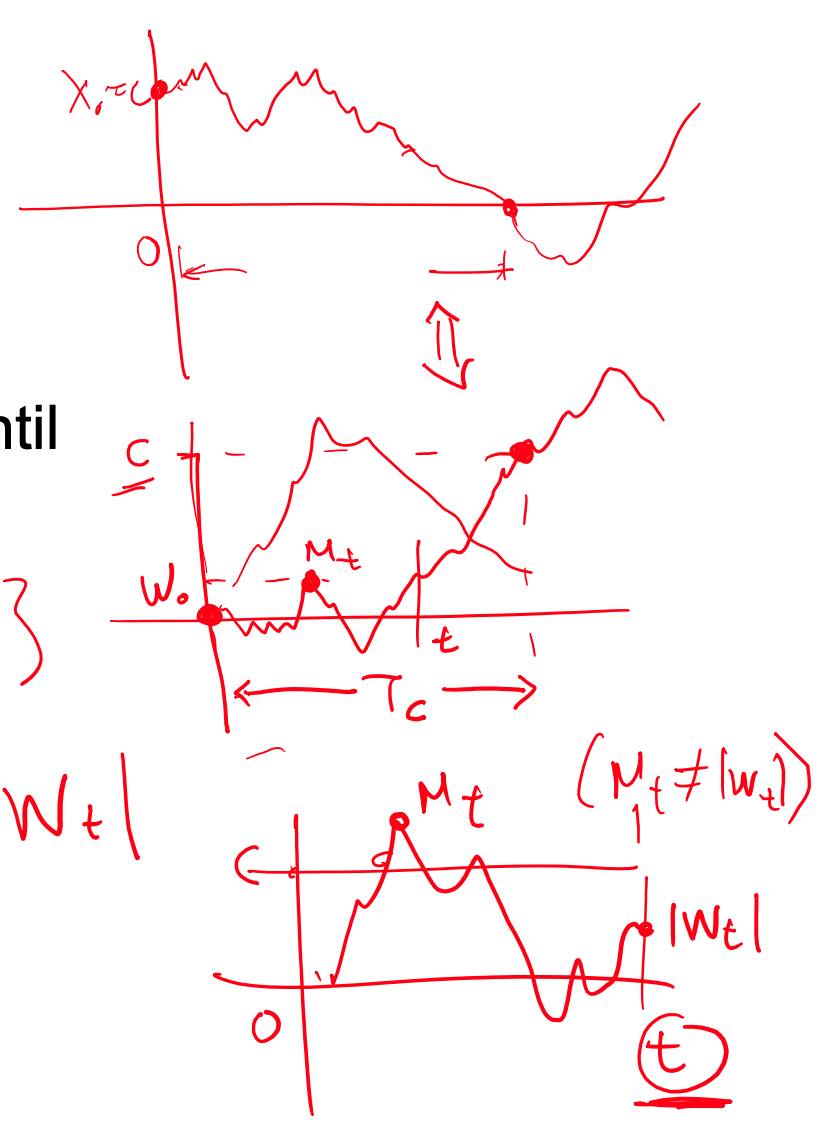 X₀ = C
0
ntil
C
M_t
W₀
t
}
T_c
W_t|
M_t
(M_t ≠ |W_t|)
C
|W_t|
0
t